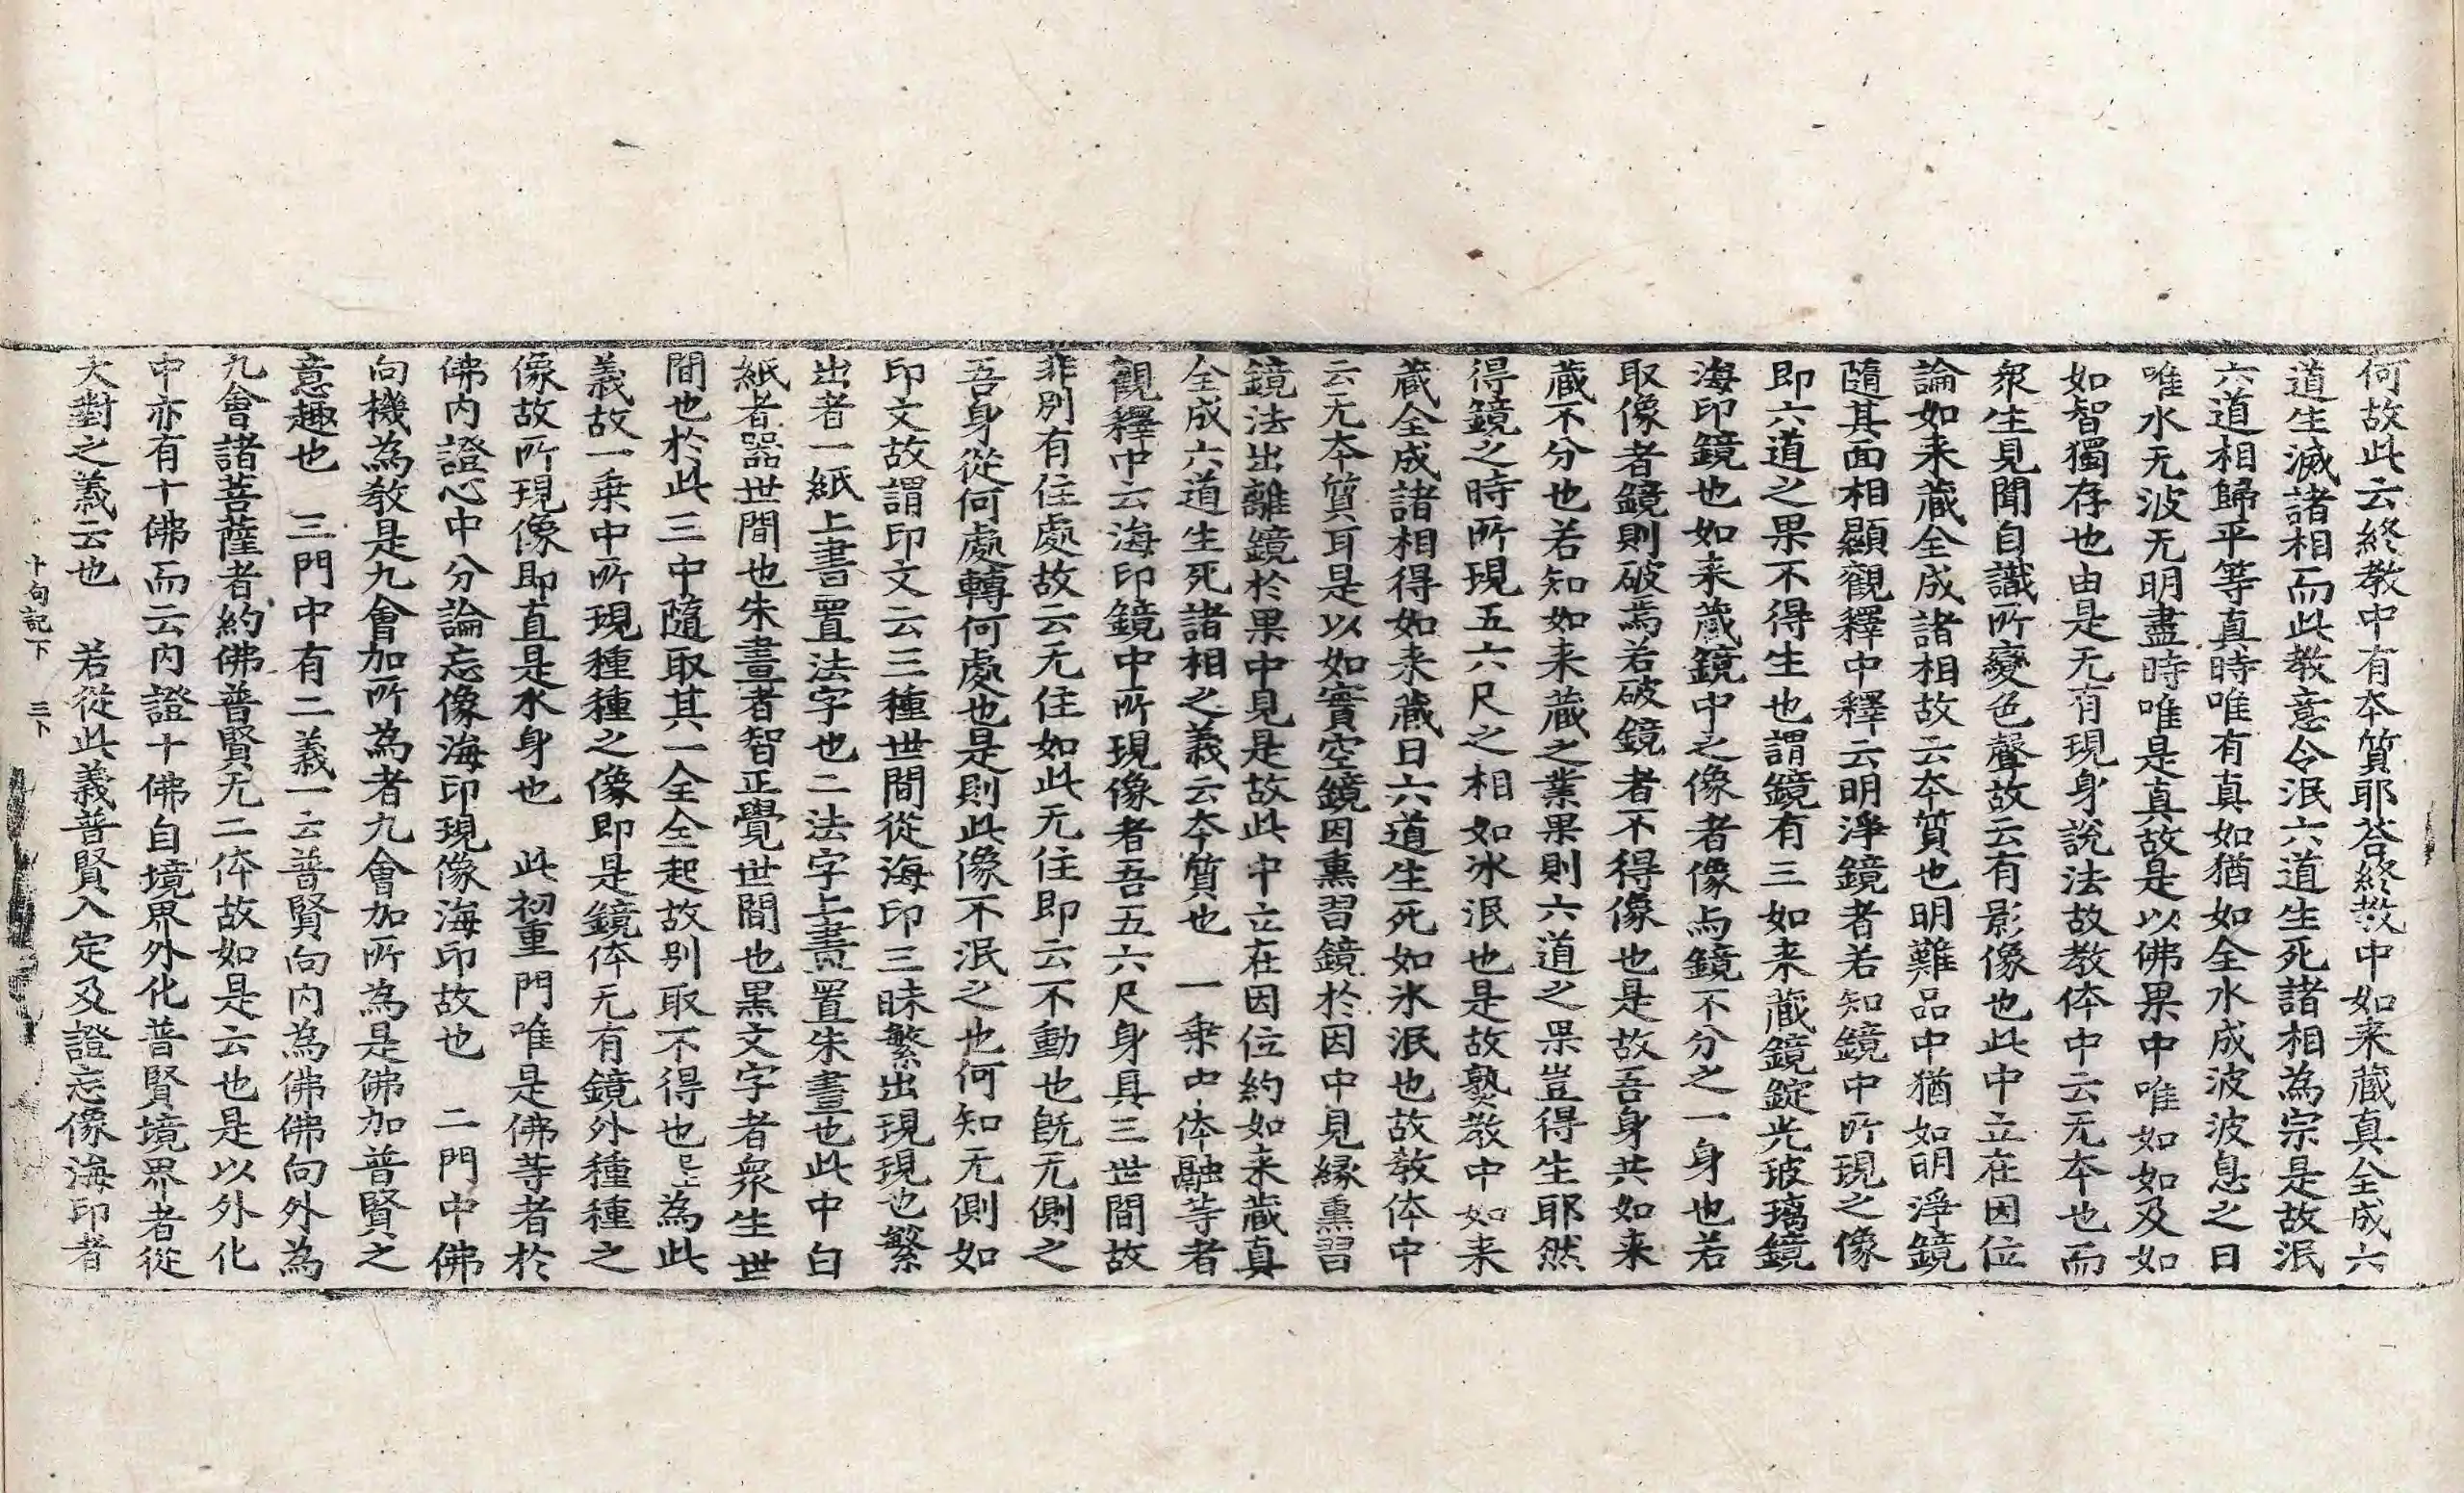 何故此云終教中有本質耶荅終教中如来藏真全成六
道生滅諸相而此教意令泯六道生死諸相為宗是故泯
六道相歸平等真時唯有真如猶如全水成波波息之日
唯水无波无明盡時唯是真故是以佛果中唯如如及如
如智獨存也由是无有現身說法故教体中云无本也而
衆生見聞自識所變色聲故云有影像也此中立在因位
論如来藏全成諸相故云本質也明難品中猶如明淨鏡
隨其面相顯觀釋中釋云明淨鏡者若知鏡中所現之像
即六道之果不得生也謂鏡有三如来藏鏡錠光玻瓈鏡
海印鏡也如来藏鏡中之像者像与鏡不分之一身也若
取像者鏡則破焉若破鏡者不得像也是故吾身共如来
藏不分也若知如来藏之業果則六道之果豈得生耶然
得鏡之時所現五六尺之相如氷泯也是故熟教中如来
藏全成諸相得如来藏日六道生死如氷泯也故教体中
云无本質耳是以如實空鏡因熏習鏡於因中見縁熏習
鏡法出離鏡於果中見是故此中立在因位約如来藏真
全成六道生死諸相之義云本質也　一乗中体融等者
觀釋中云海印鏡中所現像者吾五六尺身具三世間故
非別有住處故云无住如此无住即云不動也旣无側之
吾身從何處轉何處也是則此像不泯之也何知无側如
印文故謂印文云三種世間從海印三昧繁出現現也繁
出者一紙上書置法字也二法字上畫置朱畫也此中白
紙者器世間也朱畫者智正覺世間也黒文字者衆生世
間也於此三中隨取其一全全起故別取不得也為此
義故一乗中所現種種之像即是鏡体无有鏡外種種之
像故所現像即直是水身也　此初重門唯是佛等者於
佛内證心中分論忘像海印現像海印故也　二門中佛
向機為教是九會加所為者九會加所為是佛加普賢之
意趣也　三門中有二義一云普賢向内為佛佛向外為
九會諸菩薩者約佛普賢无二体故如是云也是以外化
中亦有十佛而云内證十佛自境界外化普賢境界者從
大對之義云也　若從此義普賢入定及證忘像海印者
十句記下　三下